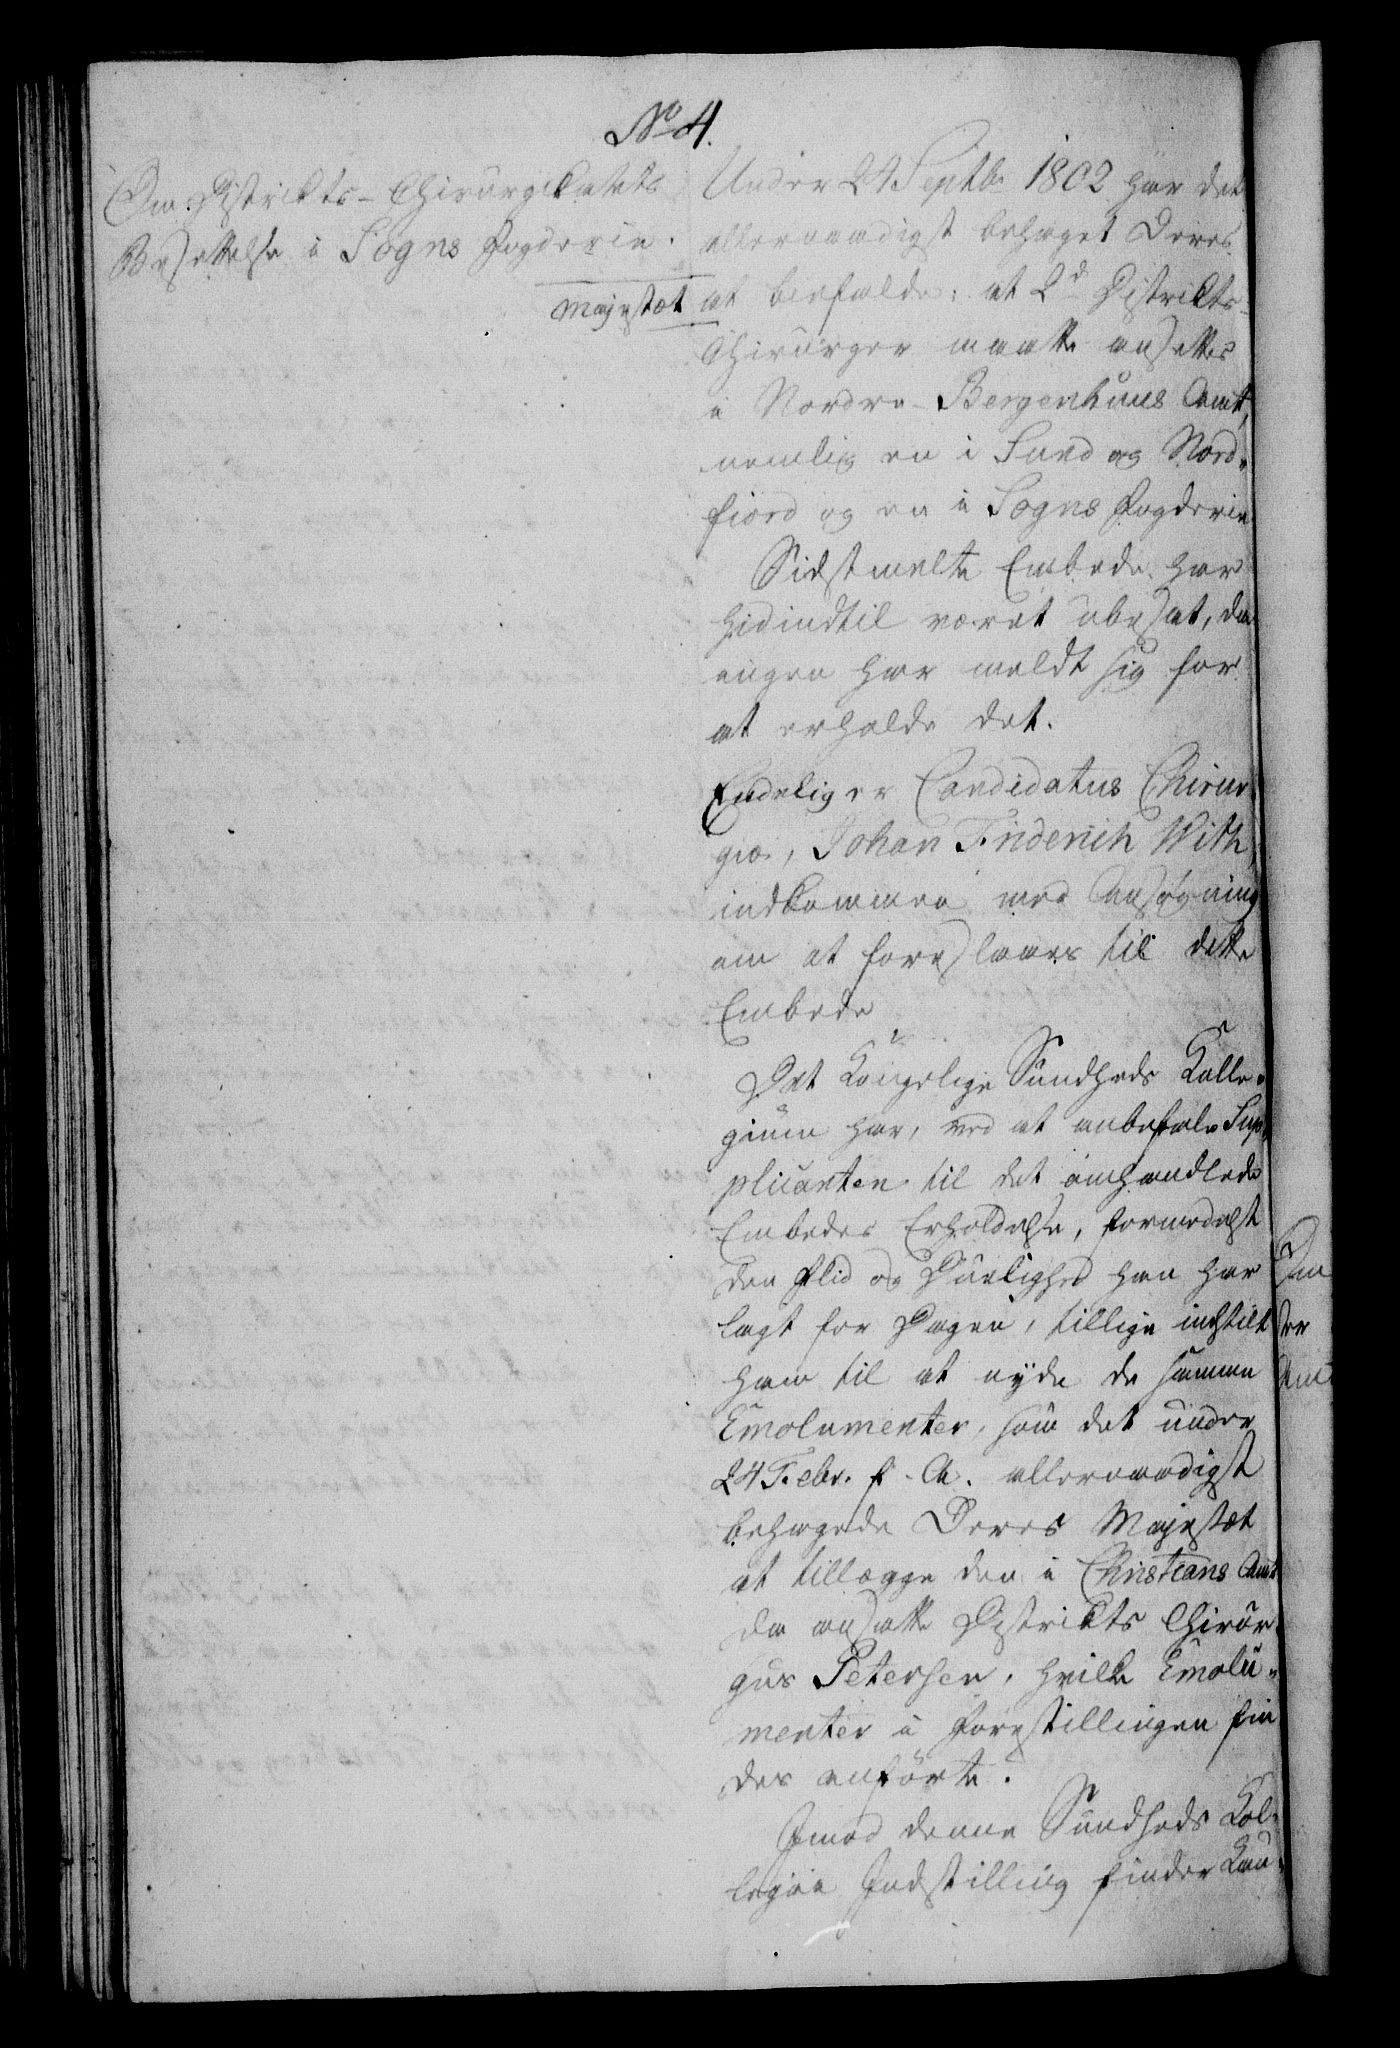 No 4.
Om Distrikts-Chirurgikatets
Besettelse i Sogns Fogderie.
Under 24 Septbr 1802 har det
allernaadigst behaget Deres
Majestæt
at bifalde: at 2de Distrikts-
Chirurger maatte ansettes
i Nordre-Bergenhuus Amt,
nemlig en i Sund og Nord-
fiord og en i Sogns Fogderie
Sidstmelte Embede har
hidindtil været ubesat, da
ingen har meldt sig for
at erholde det.
Endelig er Candidatus Chirur-
giæ, Johan Friderich With,
indkommen med Ansøgning
om at foreslaaes til dette
Embede
Det Kongelige Sundheds Kolle-
gium har, ved at anbefale Sup-
plicanten til det omhandlede
Embedes Erholdelse, formedelst
den Flid og Duelighed han har
lagt for Dagen, tillige indstilt
ham til at nyde de samme
Emolumenter, som det under
24 Febr. f. A. allernaadigst
behagede Deres Majestæt
at tillægge den i Christians Amt
da ansatte Distrikts Chirur-
gus Petersen, hvilke Emolu-
menter i Forestillingen fin
des anførte.
Imod denne Sundheds Kol-
legii Indstilling finder Kan-